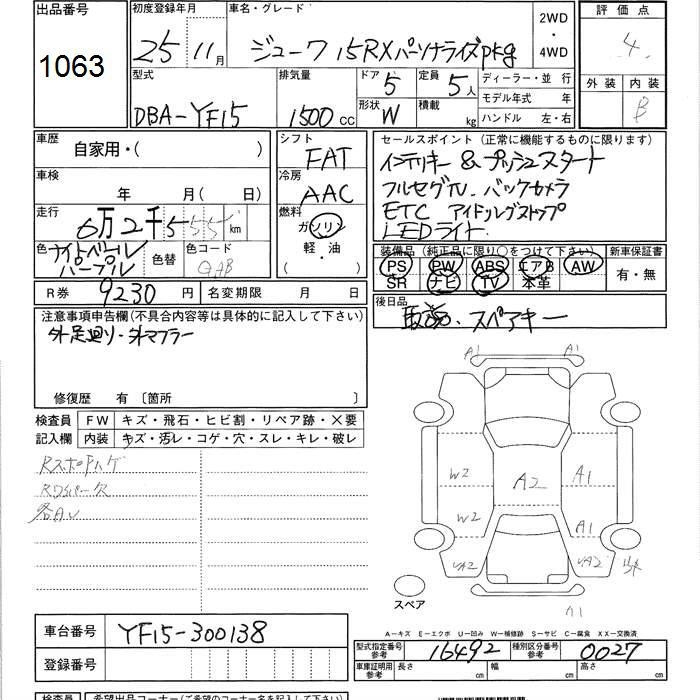 出品番号 初度登録年月 車名・グレード 2WD ・ 4WD 評価点
1063 25 11月 ジューク 15RX パーソナライズpkg 4
型式 排気量 ドア 5 定員 5人 ディーラー・並行 外装 内装
DBA-YF15 1500 CC 形状 W 積載 kg モデル年式 年 B
ハンドル 左・右
車歴 自家用・( ) シフト FAT セールスポイント (正常に機能するものに限ります)
インテリキー & プッシュスタート
車検 年 月( 日) 冷房 AAC フルセグTV. バックカメラ
走行 6万2千555km 燃料 ガソリン ETC アイドリングストップ
軽・油 LEDライト.
色 ナイトベールパープル 色替 色コード GAB
装備品 (純正品に限り○をつけて下さい) 新車保証書
PS PW ABS エアB AW 有・無
SR ナビ TV 本革
R券 9230 円 名変期限 月 日
後日品
取説・スペアキー
注意事項申告欄(不具合内容等は具体的に記入して下さい)
外足廻り・外マフラー
修復歴 有 〔箇所 〕
検査員 FW キズ・飛石・ヒビ割・リペア跡・×要
記入欄 内装 キズ・汚レ・コゲ・穴・スレ・キレ・破レ
A1 A1
W2 A2 A1
W2 A1
VA2 VA2
A1
スペア
A-キズ E-エクボ U-凹み W-補修跡 S-サビ C-腐食 XX-交換済
車台番号 YF15-300138
型式指定番号 参考 16492 種別区分番号 参考 0027
登録番号
車庫証明用 参考 長さ cm 幅 cm 高さ cm
検査員 希望出品コーナー(ご希望のコーナー名を記入